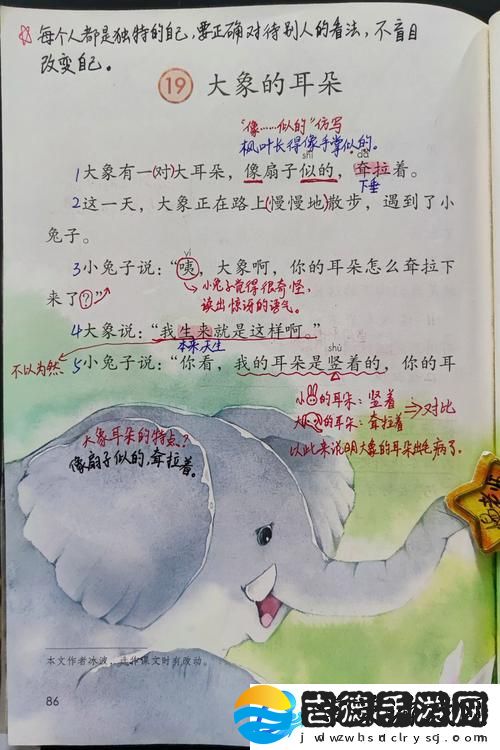 每个人都是独特的自己，要正确对待别人的看法，不盲目
改变自己。
19 大象的耳朵
“像……似的”仿写
枫叶长得像手掌似的。
shì dā
1大象有一(对)大耳朵，像扇子似的，耷拉着。
下垂
2这一天，大象正在路上(慢慢地)散步，遇到了小
兔子。
yí
3小兔子说：“咦，大象啊，你的耳朵怎么耷拉下
来了？”
小兔子觉得很奇怪，
读出惊讶的语气。
4大象说：“我生来就是这样啊。”
本来 天生
不以为然
shù
5小兔子说：“你看，我的耳朵是竖着的，你的耳
小的耳朵：竖着
大的耳朵：耷拉着
⇒对比
以此来说明大象的耳朵出毛病了。
大象耳朵的特点？
像扇子似的，耷拉着。
本文作者冰波，选作课文时有改动。
86
吉德手游网
jdwzwbsdclrysg.com